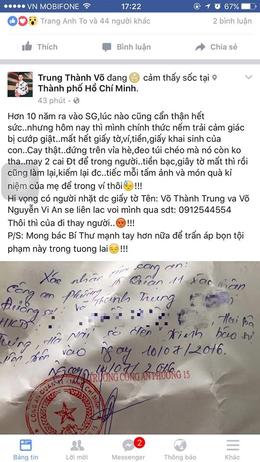 VN MOBIFONE
17:22
67%
Trang Anh To và 44 người khác
2 bình luận
Thích
Bình luận
Chia sẻ
Trung Thành Võ đang cảm thấy sốc tại
Thành phố Hồ Chí Minh.
43 phút
Hơn 10 năm ra vào SG,lúc nào cũng cẩn thận hết
sức..nhưng hôm nay thì mình chính thức nếm trải cảm giác
bị cướp giật..mất hết giấy tờ,ví,tiền,giấy khai sinh của
con..Cay thật..đứng trên vỉa hè,đeo túi chéo mà nó còn ko
tha..may 2 cái Đt để trong người..tiền bạc,giấy tờ mất thì rồi
cũng làm lại,kiếm lại đc..tiếc mỗi tấm ảnh và món quà kỉ
niệm của mẹ để trong ví thôi!!!
Hi vọng có người nhặt dc giấy tờ Tên: Võ Thành Trung va Võ
Nguyễn Vi An se liên lac voi mình qua sdt: 0912544554
Thôi thì của đi thay người..!!!
P/S: Mong bác Bí Thư mạnh tay hơn nữa để trấn áp bọn tội
phạm này trong tuong lai!!!
Xác nhận của công an:
Công an phường 15
Thành Trung
vào ngày 10/07/2016.
TRƯỞNG CÔNG AN PHƯỜNG 15
Bảng tin
Lời mời
Messenger
2
Thông báo
Khác